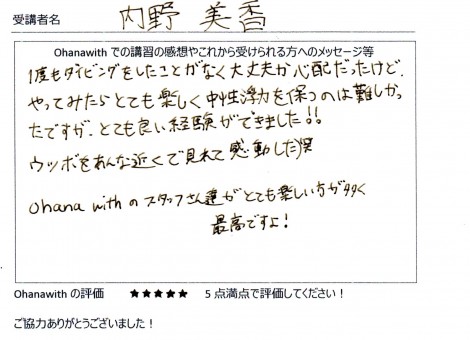 受講者名 内野 美香
Ohanawith での講習の感想やこれから受けられる方へのメッセージ等
1度もダイビングをしたことがなく大丈夫か心配だったけど、
やってみたらとても楽しく中性浮力を保つのは難しかっ
たですが、とても良い経験ができました!!
ウツボをあんな近くで見れて感動した笑
ohana with のスタッフさん達がとても楽しい方が多く
最高ですよ!
Ohanawith の評価 ★★★★★ 5 点満点で評価してください！
ご協力ありがとうございました！